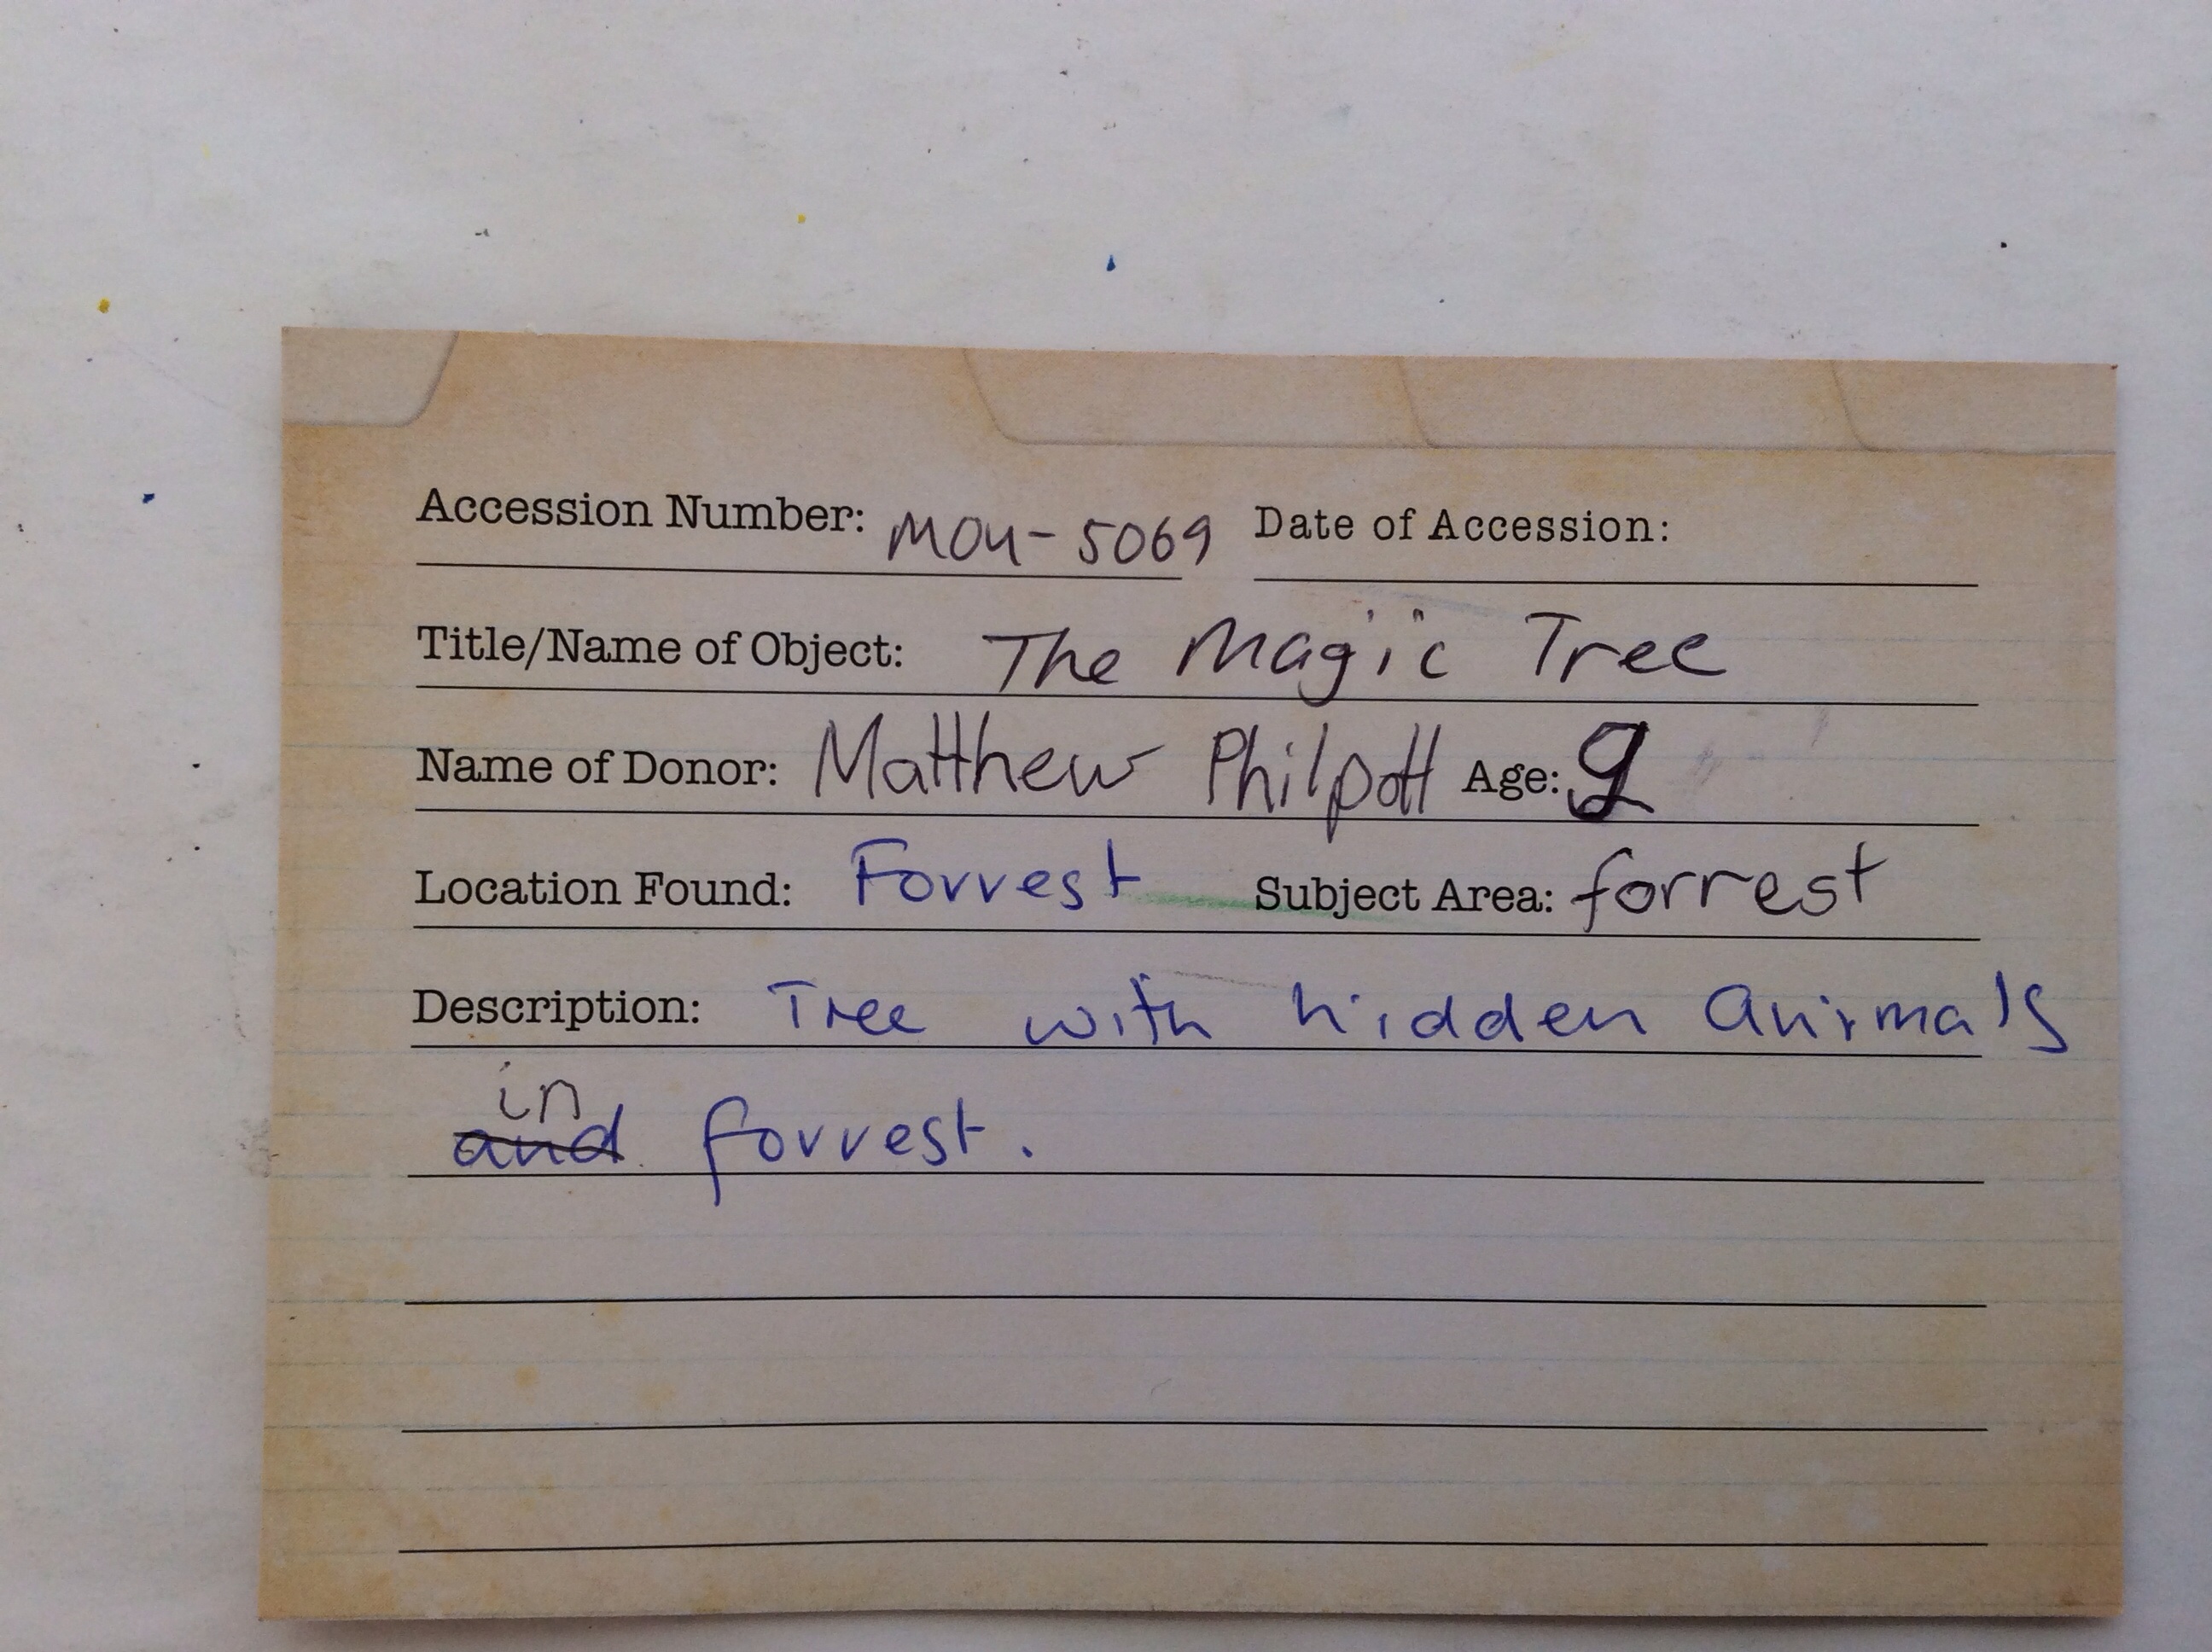 Accession Number: MOU-5069 Date of Accession:
Title/Name of Object: The Magic Tree
Name of Donor: Matthew Philpott Age: 9
Location Found: Forrest Subject Area: forrest
Description: Tree with hidden animals
in
and forrest.